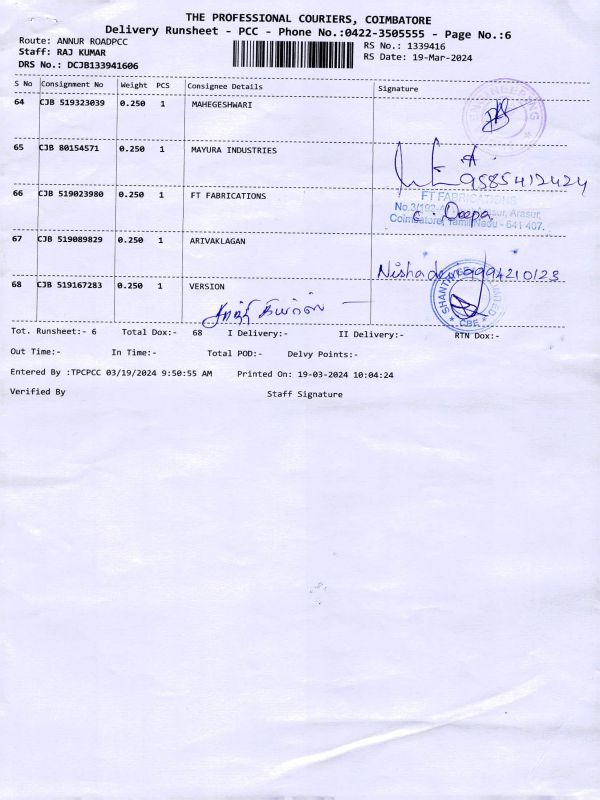 THE PROFESSIONAL COURIERS, COIMBATORE
Delivery Runsheet - PCC - Phone No.:0422-3505555 - Page No.:6
Route: ANNUR ROADPCC
RS No.: 1339416
Staff: RAJ KUMAR
RS Date: 19-Mar-2024
DRS No.: DCJB133941606
S No Consignment No Weight PCS Consignee Details Signature
64 CJB 519323039 0.250 1 MAHEGESHWARI
65 CJB 80154571 0.250 1 MAYURA INDUSTRIES
9585412424
66 CJB 519023980 0.250 1 FT FABRICATIONS
FT FABRICATIONS
C. Deepa
Coimbatore, Tamil Nadu - 641 407.
67 CJB 519089829 0.250 1 ARIVAKLAGAN
9994210123
68 CJB 519167283 0.250 1 VERSION
CBE
Tot. Runsheet:- 6 Total Dox:- 68 I Delivery:- II Delivery:- RTN Dox:-
Out Time:- In Time:- Total POD:- Delvy Points:-
Entered By :TPCPCC 03/19/2024 9:50:55 AM Printed On: 19-03-2024 10:04:24
Verified By Staff Signature